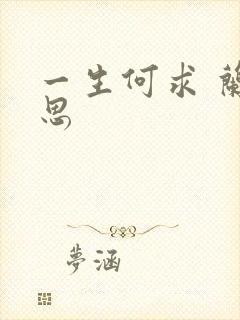 一生何求 蘭
思
夢涵